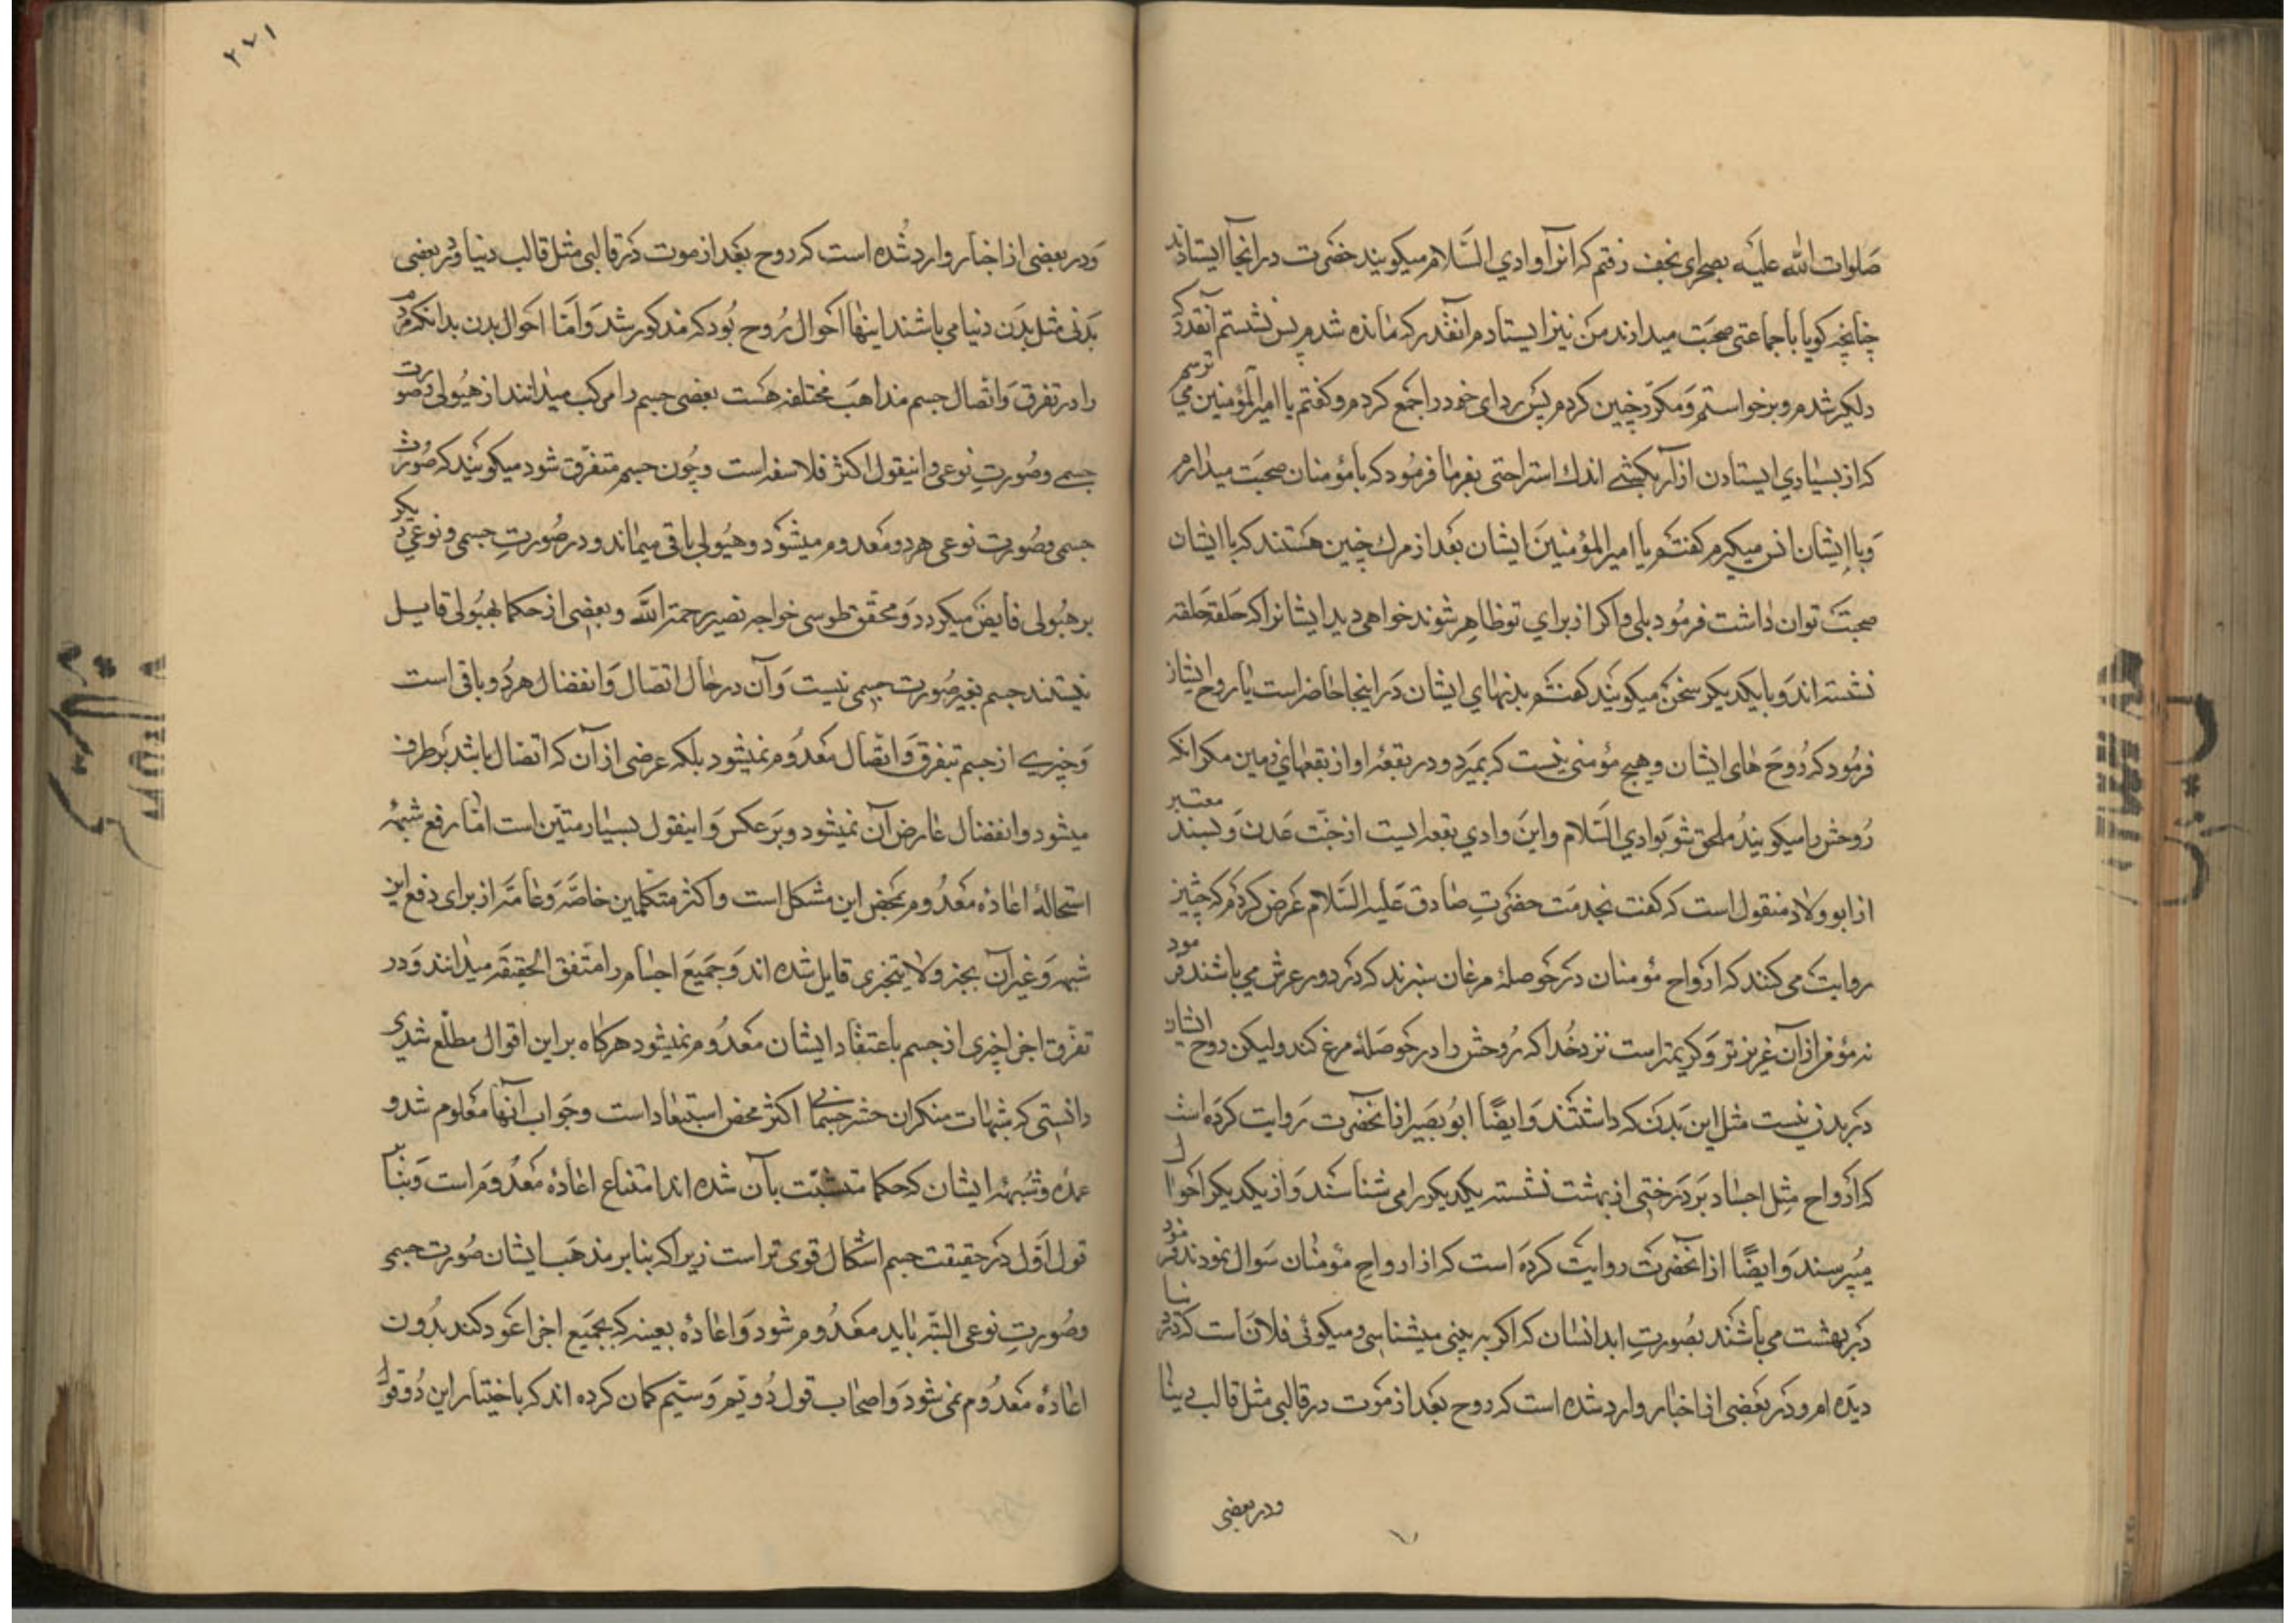 صلوات الله علیه بصحرای نجف رفتم که انرا وادي السّلام میکویند حضرت در انجا ایستادند
چنانچه کویا با جماعتی صحبت میدارند من نیز ایستادم انقدر که مانده شدم پس نشستم آنقدر که
دلکیر شدم و برخواستم و مکرّر چنین کردم پس ردای خود را جمع کردم و کفتم یا امیرالمؤمنین می ترسم
که از بسیاري ایستادن ازار بکشے اندك استراحتی بفرما فرمود که با مؤمنان صحبت میدارم
و با ایشان انس میکیرم کفتم یا امیر المؤمنین ایشان بعد از مرك چنین هستند که با ایشان
صحبت توان داشت فرمود بلی و اکر از براي تو ظاهر شوند خواهی دید ایشانرا که حلقه حلقه
نشسته اند و با یکدیکر سخن میکویند کفتم بدنهاي ایشان در اینجا حاضر است یا روح ایشان
فرمود که روح های ایشان و هیچ مؤمنی نیست که بمیرد در بقعۀ او از بقعهاي زمین مکر انکه
روحش را میکویند ملحق شو بوادي السّلام و این وادي بقعه ایست از جنّت عدن و بسند معتبر
از ابو ولاد منقول است که کفت بخدمت حضرتِ صادق علیه السّلام عرض کردم که چنین
روایت می کنند که ارواح مؤمنان در حوصلۀ مرغان سبزند که در دور عرش می باشند فرمود
نه مؤمن از آن عزیزتر و کریمتر است نزد خدا که روحش را در حوصلۀ مرغ کند ولیکن روح ایشان
در بدني نیست مثل این بدن که داشتند و ایضًا ابو بصیر از انحضرت روایت کرده است
که ارواح مثِل اجساد بر درختی از بهشت نشسته یکدیکر را می شناسند و از یکدیکر احوال
میپرسند و ایضًا از انحضرت روایت کرده است که از ارواحِ مؤمنان سوال نمودند فرمود
در بهشت می باشند بصورتِ ابدانشان که اکر به بینی میشناسی و میکوئی فلان است که در دنیا
دیده ام و در بعضی از اخبار وارد شده است که روح بعد از موت در قالبی مثل قالب دنیا
ودر بعضی
٢٧١
ودر بعضی از اخبار وارد شده است که روح بعد از موت در قالبی مثل قالب دنیا و در بعضی
بدنی مثل بدن دنیا می باشند اینها احوال رُوح بود که مذکور شد و امّا احوال بدن بدانکه مردم
را در تفرق و اتّصال جسم مذاهب مختلفه هست بعضی جسم را مرکب میدانند از هیُولی و صورت
جسمے وصُورتِ نوعی و اینقول اکثر فلاسفه است و چون جسم متفرّق شود میکویند که صورت
جسمی و صُورتِ نوعی هر دو معدوم میشود و هیُولی باقی میماند و در صورتِ جسمی و نوعي دیکر
بر هیُولی فایض میکردد و محقّق طوسی خواجه نصیر رحمة الله و بعضی از حکما بهیُولی قایل
نیستند جسم بغیر صُورت جسمی نیست و آن در حال اتّصال و انفصال هر دو باقی است
و چیزے از جسم بتفرق و اتّصال معدُوم نمیشود بلکه عرضی از آن که اتصال باشد برطرف
میشود و انفصال عارض آن نمیشود و بر عکس و اینقول بسیار متین است امّا رفع شبهۀ
استحالۀ اعادۀ معدُوم بمحض این مشکل است و اکثر متکلّمین خاصّه و عامّه از برای دفع این
شبهه و غیر آن بجزء ولا یتجزی قایل شده اند و جمیَع اجسام را متّفق الحقیقه میدانند و در
تفرّق اجزا چیزی از جسم باعتقاد ایشان معدُوم نمیشود هرکاه بر این اقوال مطلّع شدي
دانستی که شبهات منکران حشر جسمانی اکثر محض استبعاد است و جواب آنها معلوم شد و
عمدۀ و شبهۀ ایشان که حکما متشبّث بآن شده اند امتناع اعادۀ معدُوم است و بنا بر
قول اوّل در حقیقت جسم اشکال قوی تر است زیرا که بنا بر مذهب ایشان صُورت جسمی
وصُورتِ نوعی البتّه باید معدُوم شود و اعادۀ بعینه که بجمیع اجزا عود کند بدُون
اعادۀ معدُوم نمی شود و اصحاب قول دُویّم و سیّم کمان کرده اند که باختیار این دُو قول